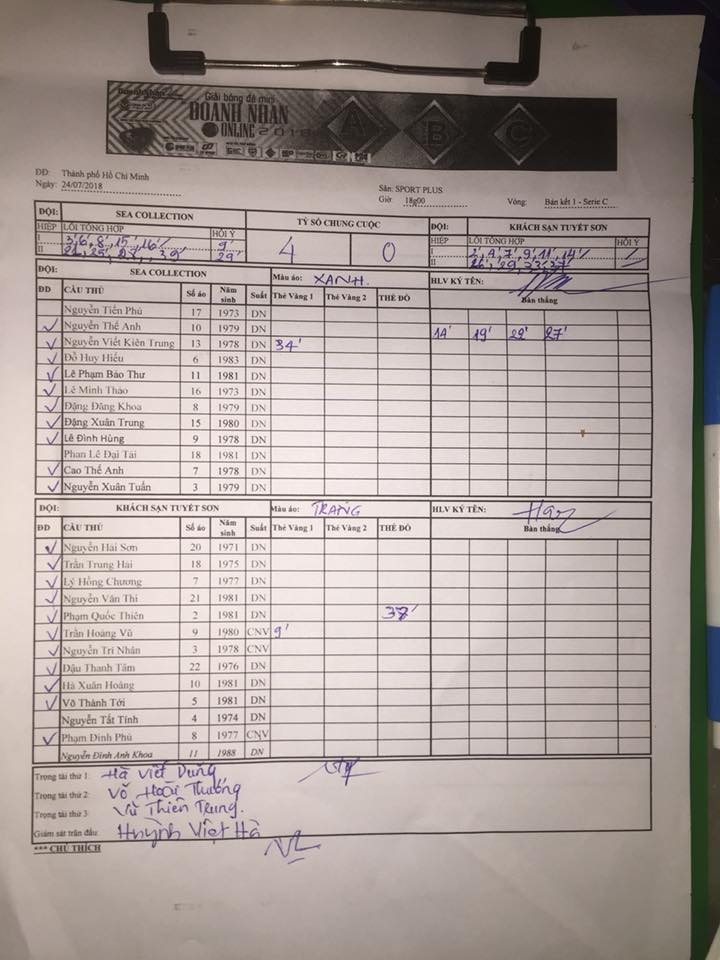 Giải bóng đá mini
DOANH NHÂN
ONLINE 2018
A B C
ĐĐ: Thành phố Hồ Chí Minh
Ngày: 24/07/2018
Sân: SPORT PLUS
Giờ: 18g00 Vòng: Bán kết 1 - Serie C
ĐỘI: SEA COLLECTION TỶ SỐ CHUNG CUỘC ĐỘI: KHÁCH SẠN TUYẾT SƠN
HIỆP LỖI TỔNG HỢP HỘI Ý 4 0 HIỆP LỖI TỔNG HỢP HỘI Ý
I 3', 6', 8', 15', 16' 9' I 2', 4', 7', 9', 11', 14'
II 29' II
ĐỘI: SEA COLLECTION Màu áo: XANH. HLV KÝ TÊN:
ĐD CẦU THỦ Số áo Năm sinh Suất Thẻ Vàng 1 Thẻ Vàng 2 THẺ ĐỎ Bàn thắng
Nguyễn Tiến Phú 17 1973 DN
Nguyễn Thế Anh 10 1979 DN 14' 19' 22' 27'
Nguyễn Viết Kiên Trung 13 1978 DN 34'
Đỗ Huy Hiếu 6 1983 DN
Lê Phạm Bảo Thư 11 1981 DN
Lê Minh Thảo 16 1973 DN
Đặng Đăng Khoa 8 1979 DN
Đặng Xuân Trung 15 1980 DN
Lê Đình Hùng 9 1978 DN
Phan Lê Đại Tài 18 1981 DN
Cao Thế Anh 7 1978 DN
Nguyễn Xuân Tuấn 3 1979 DN
ĐỘI: KHÁCH SẠN TUYẾT SƠN Màu áo: TRẮNG HLV KÝ TÊN:
ĐD CẦU THỦ Số áo Năm sinh Suất Thẻ Vàng 1 Thẻ Vàng 2 THẺ ĐỎ Bàn thắng
Nguyễn Hải Sơn 20 1971 DN
Trần Trung Hải 18 1975 DN
Lý Hồng Chương 7 1977 DN
Nguyễn Văn Thi 21 1981 DN
Phạm Quốc Thiên 2 1981 DN 38'
Trần Hoàng Vũ 9 1980 CNV 9'
Nguyễn Trí Nhân 3 1978 CNV
Đậu Thanh Tâm 22 1976 DN
Hà Xuân Hoàng 10 1981 DN
Võ Thành Tới 5 1981 DN
Nguyễn Tất Tính 4 1974 DN
Phạm Đình Phú 8 1977 CNV
Nguyễn Đình Anh Khoa 11 1988 DN
Trọng tài thứ 1: Hà Viết Dũng,
Trọng tài thứ 2: Võ Hoài Thương
Trọng tài thứ 3: Vũ Thiên Trung.
Giám sát trận đấu: Huỳnh Việt Hà
*** CHÚ THÍCH